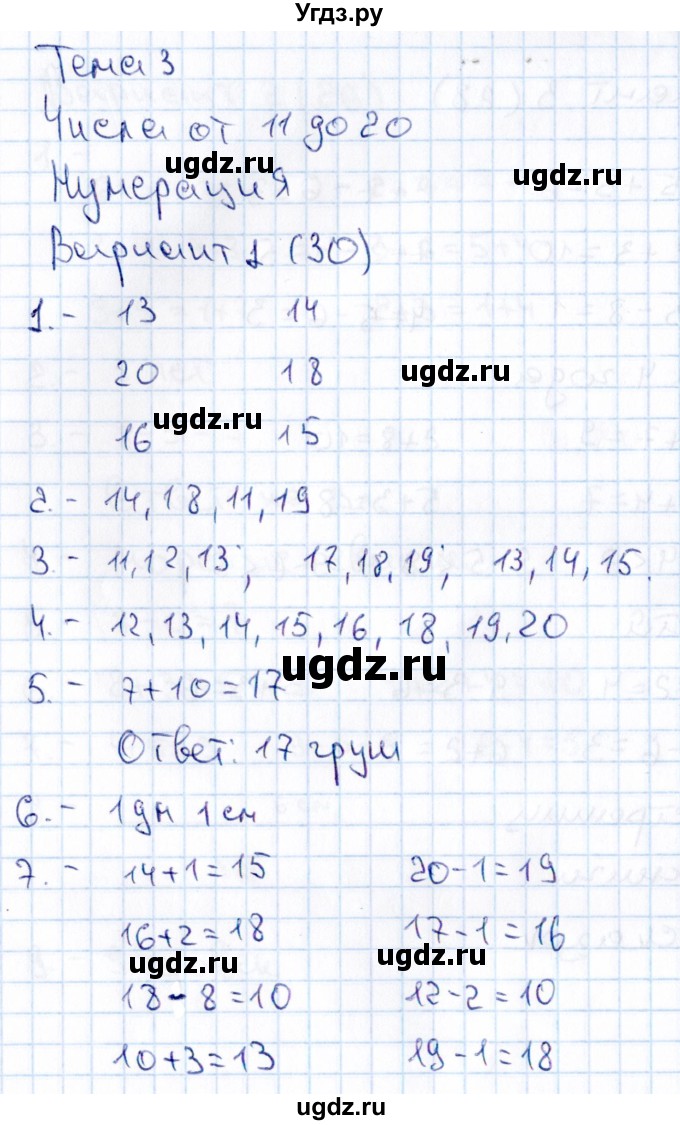 Угдз.ру
Тема 3
Числа от 11 до 20
ugdz.ru
ugdz.ru
Нумерация
Вариант 1 (30)
ugdz.ru
1.- 13 14
20 18
ugdz.ru
ugdz.ru
16 15
2.- 14, 18, 11, 19
3.- 11, 12, 13; 17, 18, 19; 13, 14, 15.
4.- 12, 13, 14, 15, 16, 18, 19, 20
ugdz.ru
5.- 7+10=17
Ответ: 17 груш
6.- 1дм 1см
7.- 14+1=15 20-1=19
16+2=18 17-1=16
ugdz.ru
ugdz.ru
18-8=10 12-2=10
10+3=13 19-1=18
ugdz.ru